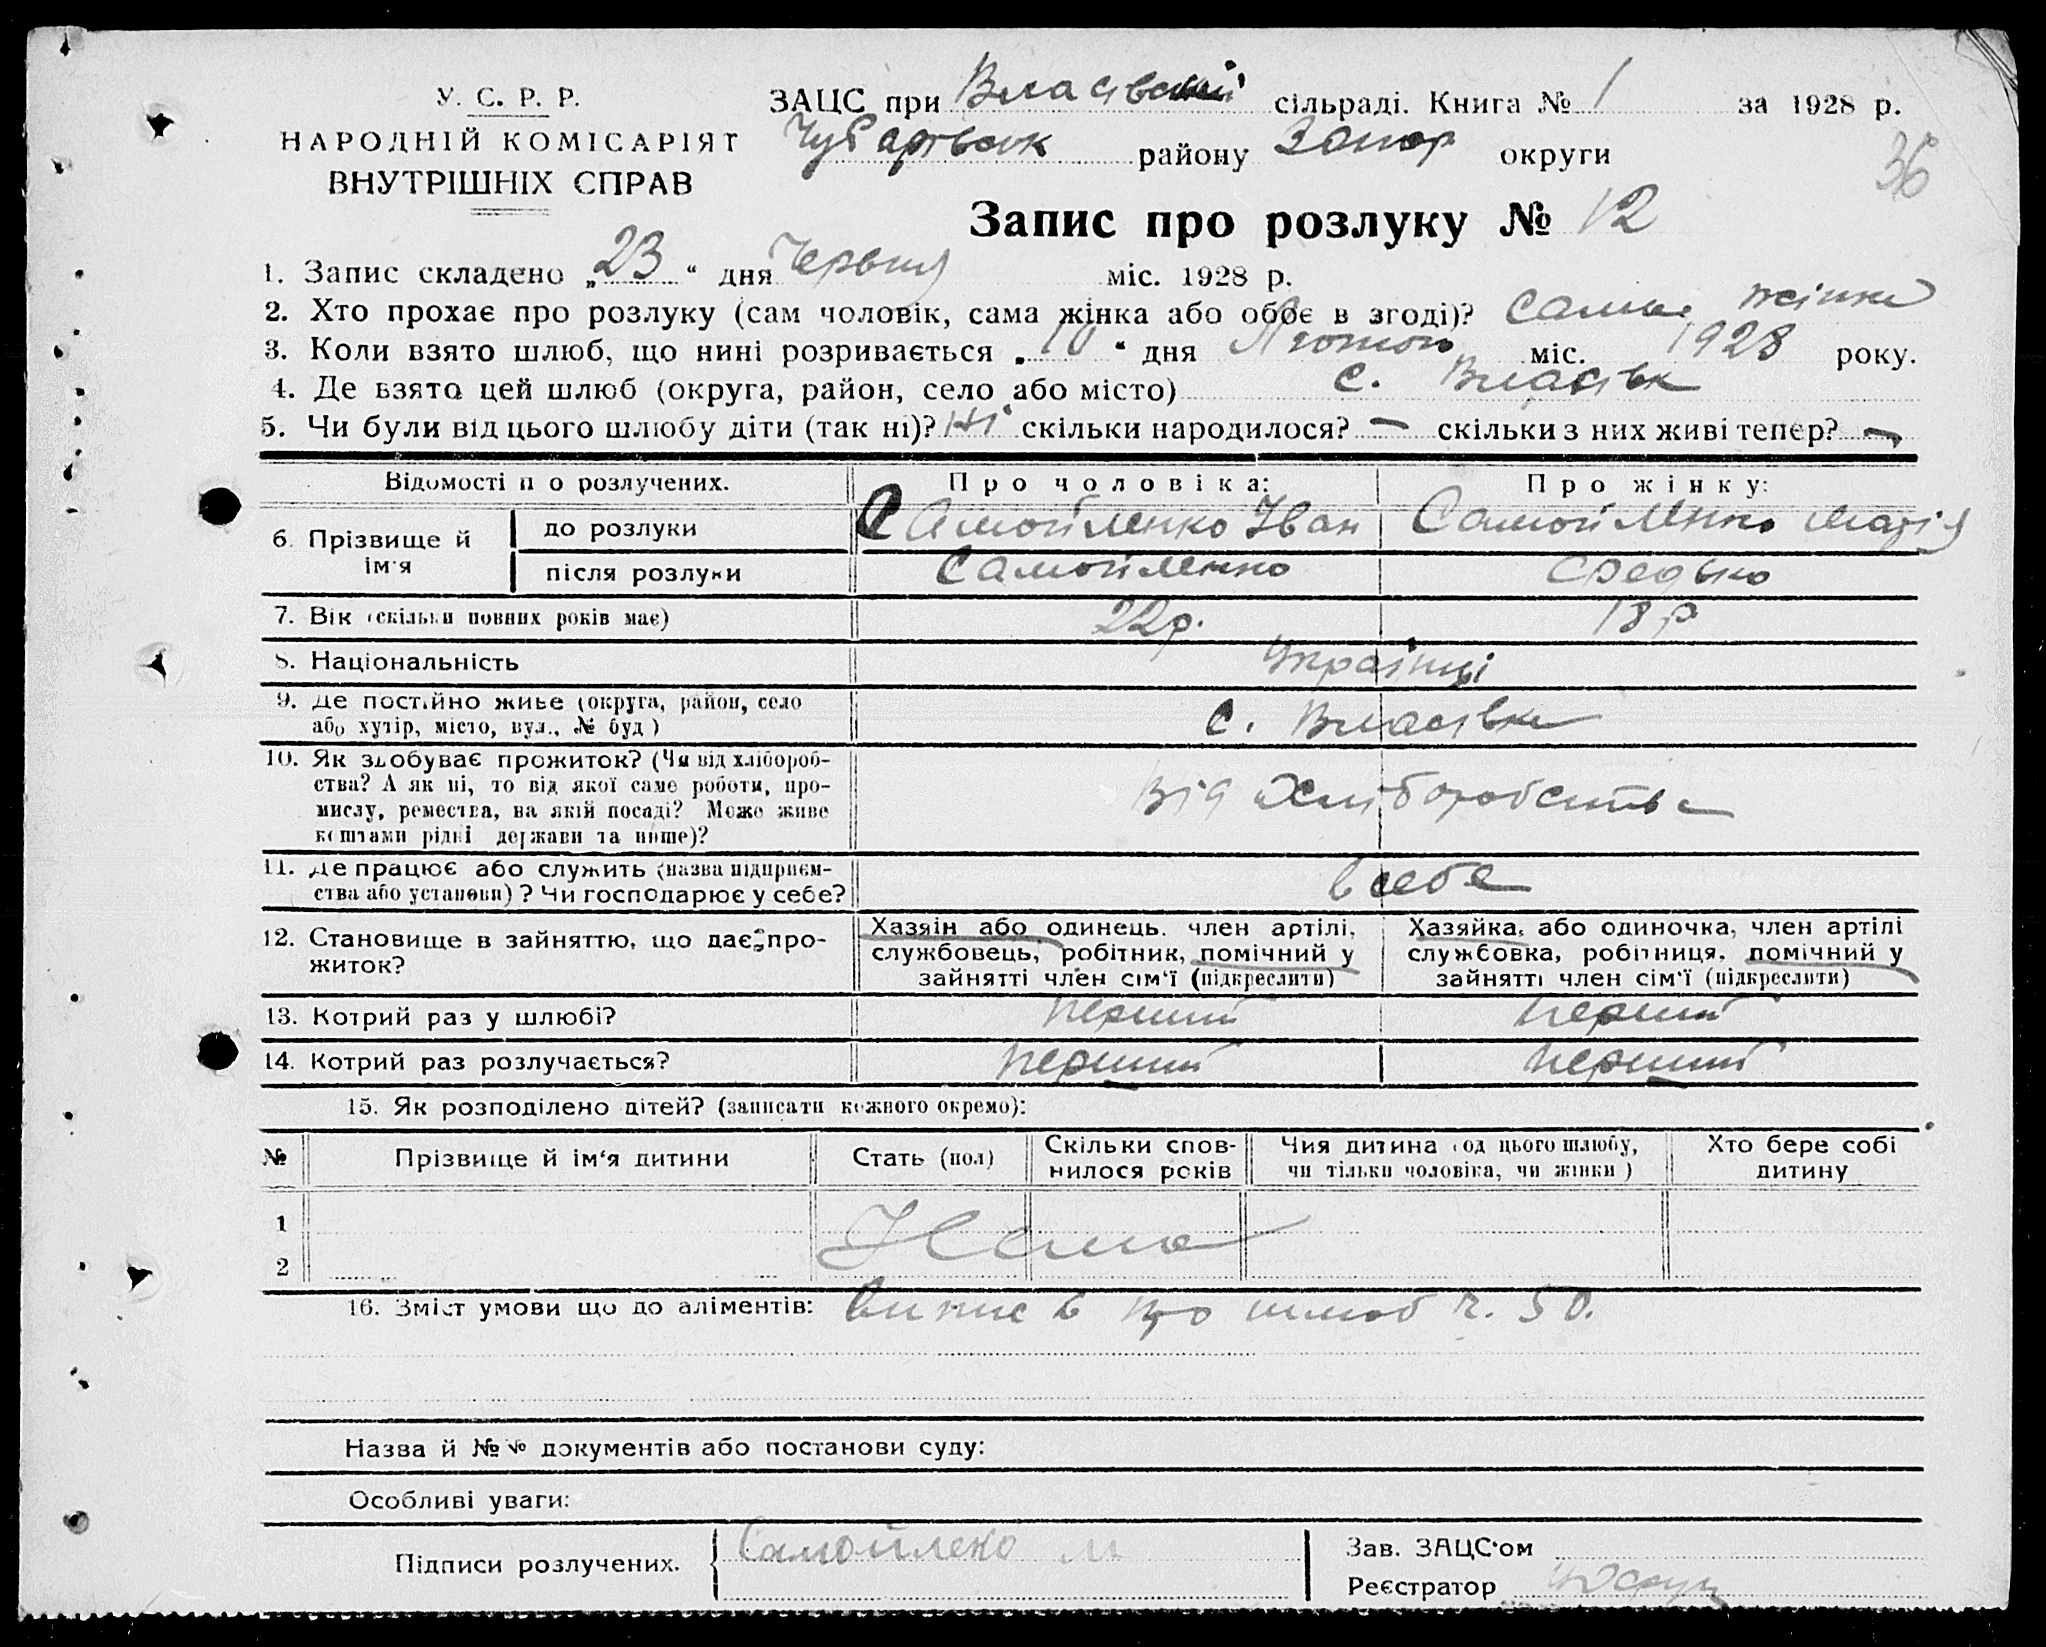 У. С. Р. Р.
НАРОДНІЙ КОМІСАРІЯТ
ВНУТРІШНІХ СПРАВ
ЗАЦС при Власівській сільраді. Книга № 1 за 1928 р.
Чубарівськ району Запор округи
36
Запис про розлуку № 12
1. Запис складено „23“ дня Червня міс. 1928 р.
2. Хто прохає про розлуку (сам чоловік, сама жінка або обоє в згоді)? сама жінка
3. Коли взято шлюб, що нині розривається „10“ дня Лютого міс. 1928 року.
4. Де взято цей шлюб (округа, район, село або місто) с. Власівк
5. Чи були від цього шлюбу діти (так ні)? Ні скільки народилося? — скільки з них живі тепер? —
Відомості п о розлучених. Про чоловіка: Про жінку:
6. Прізвище й ім'я до розлуки Самойленко Іван Самойленко Марія
після розлуки Самойленко Средько
7. Вік (скільки повних років має) 22 р. 18 р
8. Національність Українці
9. Де постійно живе (округа, район, село
або хутір, місто, вул., № буд) с. Власівка
10. Як здобуває прожиток? (Чи від хлібороб-
ства? А як ні, то від якої саме роботи, про-
мислу, ремества, на якій посаді? Може живе
коштами рідні держави та инше)? Від Хліборобства
11. Де працює або служить (назва підприєм-
ства або установи)? Чи господарює у себе? в себе
12. Становище в зайняттю, що дає про-
житок?
Хазяін або одинець, член артілі,
службовець, робітник, помічний у
зайнятті член сім'ї (підкреслити)
Хазяйка, або одиночка, член артілі
службовка, робітниця, помічний у
зайнятті член сім'ї (підкреслити)
13. Котрий раз у шлюбі? перший перший
14. Котрий раз розлучається? перший перший
15. Як розподілено дітей? (записати кожного окремо):
№ Прізвище й ім'я дитини Стать (пол) Скільки спов-
нилося років Чия дитина (од цього шлюбу,
чи тільки чоловіка, чи жінки) Хто бере собі
дитину
1
2
Нема
16. Зміст умови що до аліментів: Випис в про шлюб ч. 50.
Назва й №№ документів або постанови суду:
Особливі уваги:
Підписи розлучених. Самойлеко М
Зав. ЗАЦС'ом
Реєстратор